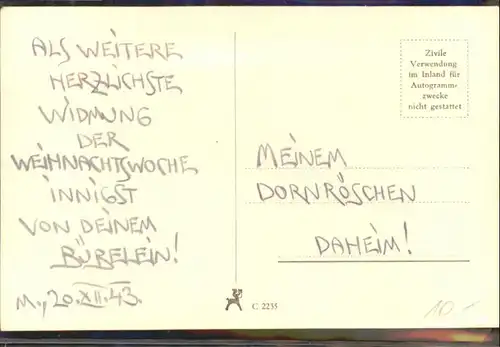 ALS WEITERE
HERZLICHSTE
WIDMUNG
DER
WEIHNACHTSWOCHE
INNIGST
VON DEINEM
BÜBELEIN!
M., 20. XII. 43.
Zivile
Verwendung
im Inland für
Autogramm-
zwecke
nicht gestattet
MEINEM
DORNRÖSCHEN
DAHEIM!
C 2235
10.-